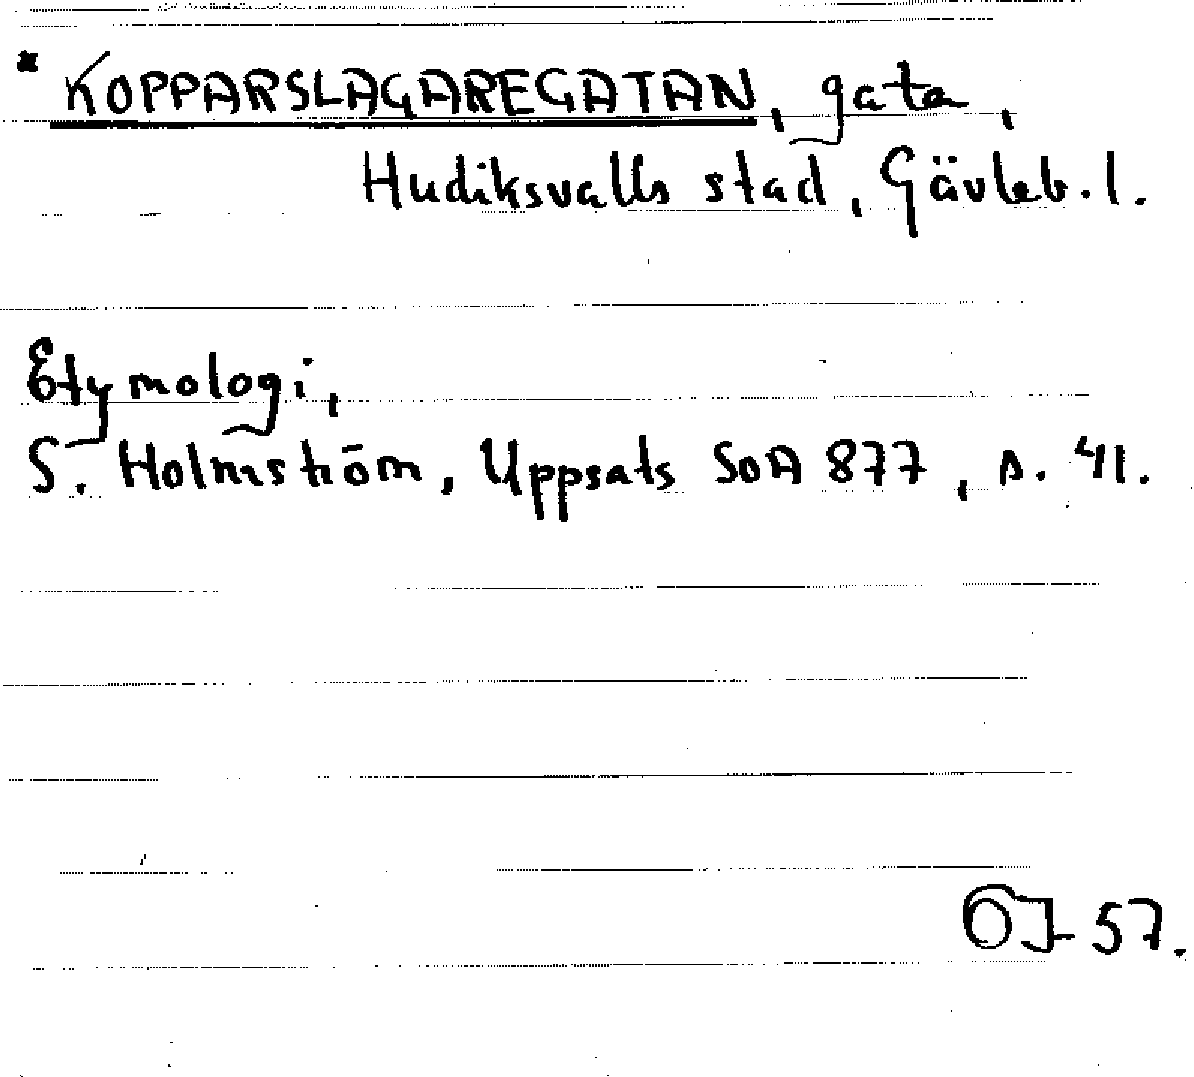 * KOPPARSLAGAREGATAN, gata,
Hudiksvalls stad, Gävleb. l.
Etymologi,
S. Holmström, Uppsats SOA 877, s. 41.
OJ 57.